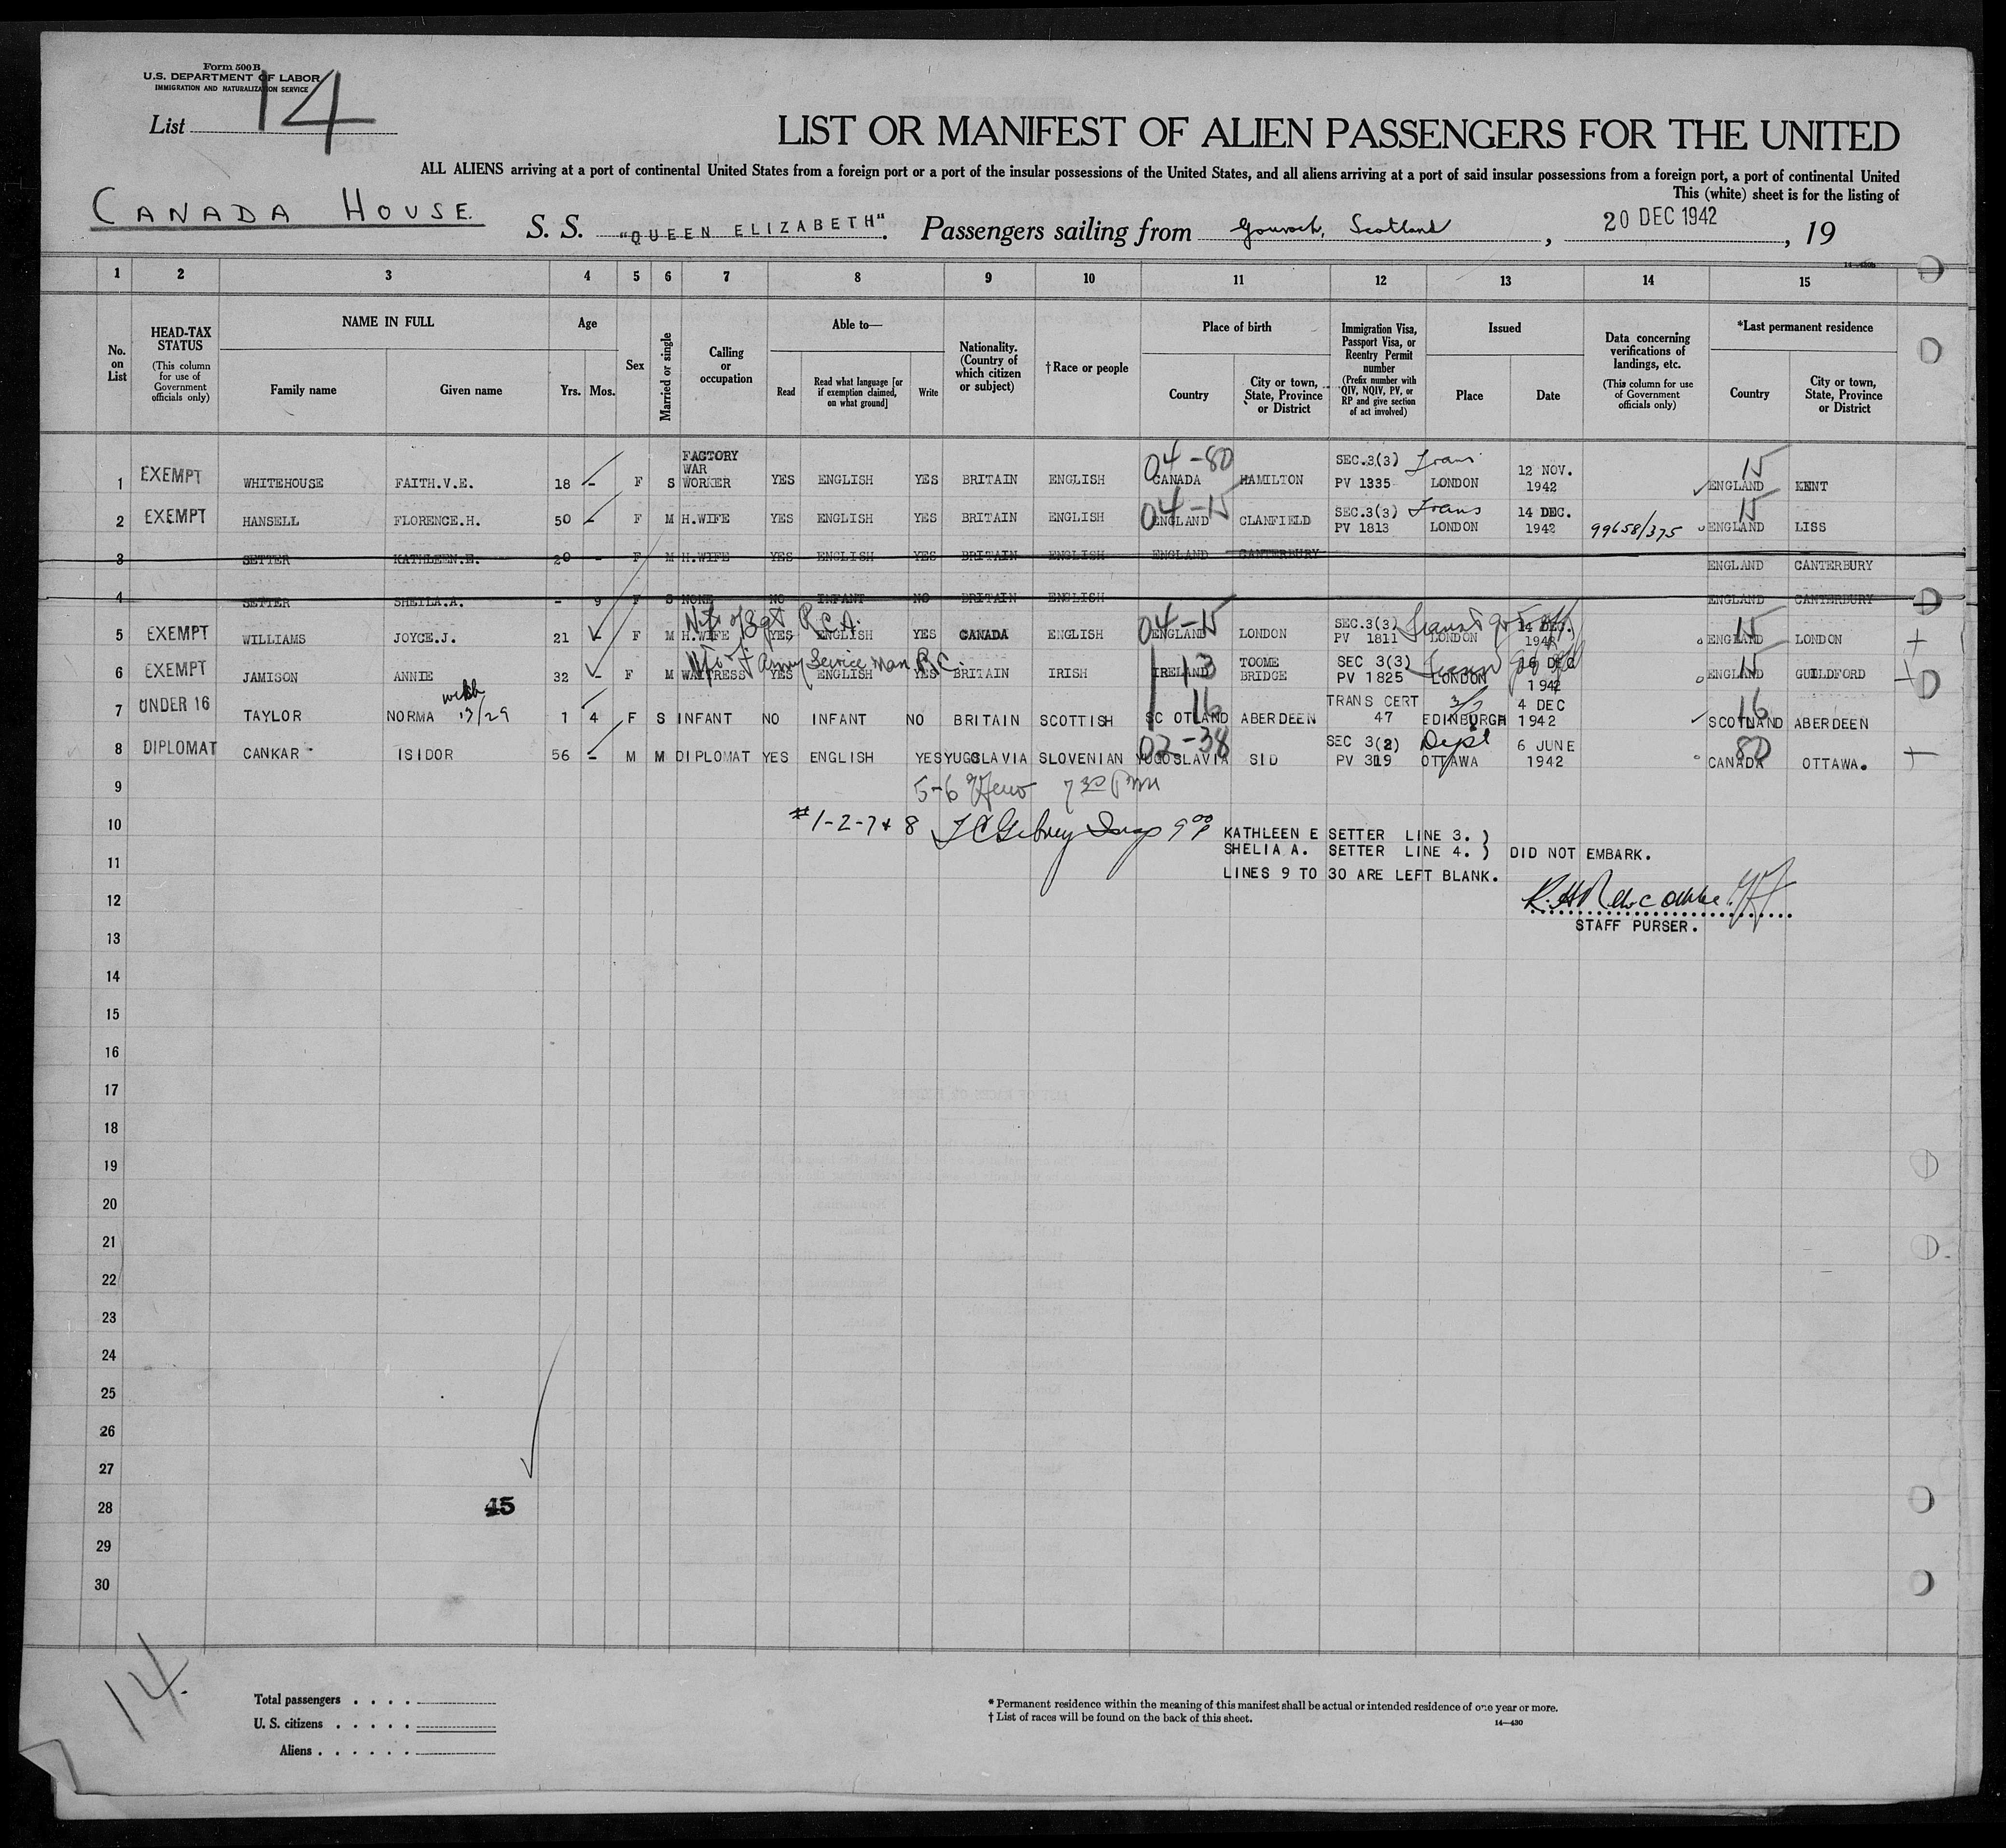 Form 500 B
U.S. DEPARTMENT OF LABOR
IMMIGRATION AND NATURALIZATION SERVICE
List 14
LIST OR MANIFEST OF ALIEN PASSENGERS FOR THE UNITED
ALL ALIENS arriving at a port of continental United States from a foreign port or a port of the insular possessions of the United States, and all aliens arriving at a port of said insular possessions from a foreign port, a port of continental United
This (white) sheet is for the listing of
CANADA HOUSE.
S. S. "QUEEN ELIZABETH". Passengers sailing from Gourock, Scotland, 20 DEC 1942, 19
14—430B
1 2 3 4 5 6 7 8 9 10 11 12 13 14 15
No. on List
HEAD-TAX STATUS (This column for use of Government officials only)
NAME IN FULL
Family name
Given name
Age
Yrs. Mos.
Sex
Married or single
Calling or occupation
Able to—
Read
Read what language [or if exemption claimed, on what ground]
Write
Nationality. (Country of which citizen or subject)
† Race or people
Place of birth
Country
City or town, State, Province or District
Immigration Visa, Passport Visa, or Reentry Permit number (Prefix number with QIV, NQIV, PV, or RP and give section of act involved)
Issued
Place
Date
Data concerning verifications of landings, etc. (This column for use of Government officials only)
*Last permanent residence
Country
City or town, State, Province or District
1 EXEMPT WHITEHOUSE FAITH.V.E. 18 - F S FACTORY WAR WORKER YES ENGLISH YES BRITAIN ENGLISH 04-80 CANADA HAMILTON SEC.3(3) PV 1335 Trans LONDON 12 NOV. 1942 15 ENGLAND KENT
2 EXEMPT HANSELL FLORENCE.H. 50 - F M H.WIFE YES ENGLISH YES BRITAIN ENGLISH 04-15 ENGLAND CLANFIELD SEC.3(3) PV 1813 Trans LONDON 14 DEC. 1942 99658/375 15 ENGLAND LISS
3 SETTER KATHLEEN.E. 20 - F M H.WIFE YES ENGLISH YES BRITAIN ENGLISH ENGLAND CANTERBURY ENGLAND CANTERBURY
4 SETTER SHEILA.A. - 9 F S NONE NO INFANT NO BRITAIN ENGLISH ENGLAND CANTERBURY
5 EXEMPT WILLIAMS JOYCE.J. 21 - F M H.WIFE of Sgt R.C.A. YES ENGLISH YES CANADA ENGLISH 04-15 ENGLAND LONDON SEC.3(3) PV 1811 LONDON 14 DEC. 1942 15 ENGLAND LONDON
6 EXEMPT JAMISON ANNIE 32 - F M WAITRESS Army Service man YES ENGLISH YES BRITAIN IRISH 13 IRELAND TOOME BRIDGE SEC 3(3) PV 1825 LONDON 16 DEC 1942 15 ENGLAND GUILDFORD
7 UNDER 16 TAYLOR NORMA 1 4 F S INFANT NO INFANT NO BRITAIN SCOTTISH 16 SCOTLAND ABERDEEN TRANS CERT 47 3/3 EDINBURGH 4 DEC 1942 16 SCOTLAND ABERDEEN
8 DIPLOMAT CANKAR ISIDOR 56 - M M DIPLOMAT YES ENGLISH YES YUGSLAVIA SLOVENIAN 02-38 YUGOSLAVIA SID SEC 3(2) PV 319 Dept OTTAWA 6 JUNE 1942 80 CANADA OTTAWA.
9 5-6 7 30 Pm
10 #1-2-7 & 8 9 00 P KATHLEEN E SETTER LINE 3. )
11 SHELIA A. SETTER LINE 4. ) DID NOT EMBARK.
LINES 9 TO 30 ARE LEFT BLANK.
12
STAFF PURSER.
13
14
15
16
17
18
19
20
21
22
23
24
25
26
27
28 45
29
30
14.
Total passengers . . . .
U. S. citizens . . . . .
Aliens . . . . . .
* Permanent residence within the meaning of this manifest shall be actual or intended residence of one year or more.
† List of races will be found on the back of this sheet.
14—430